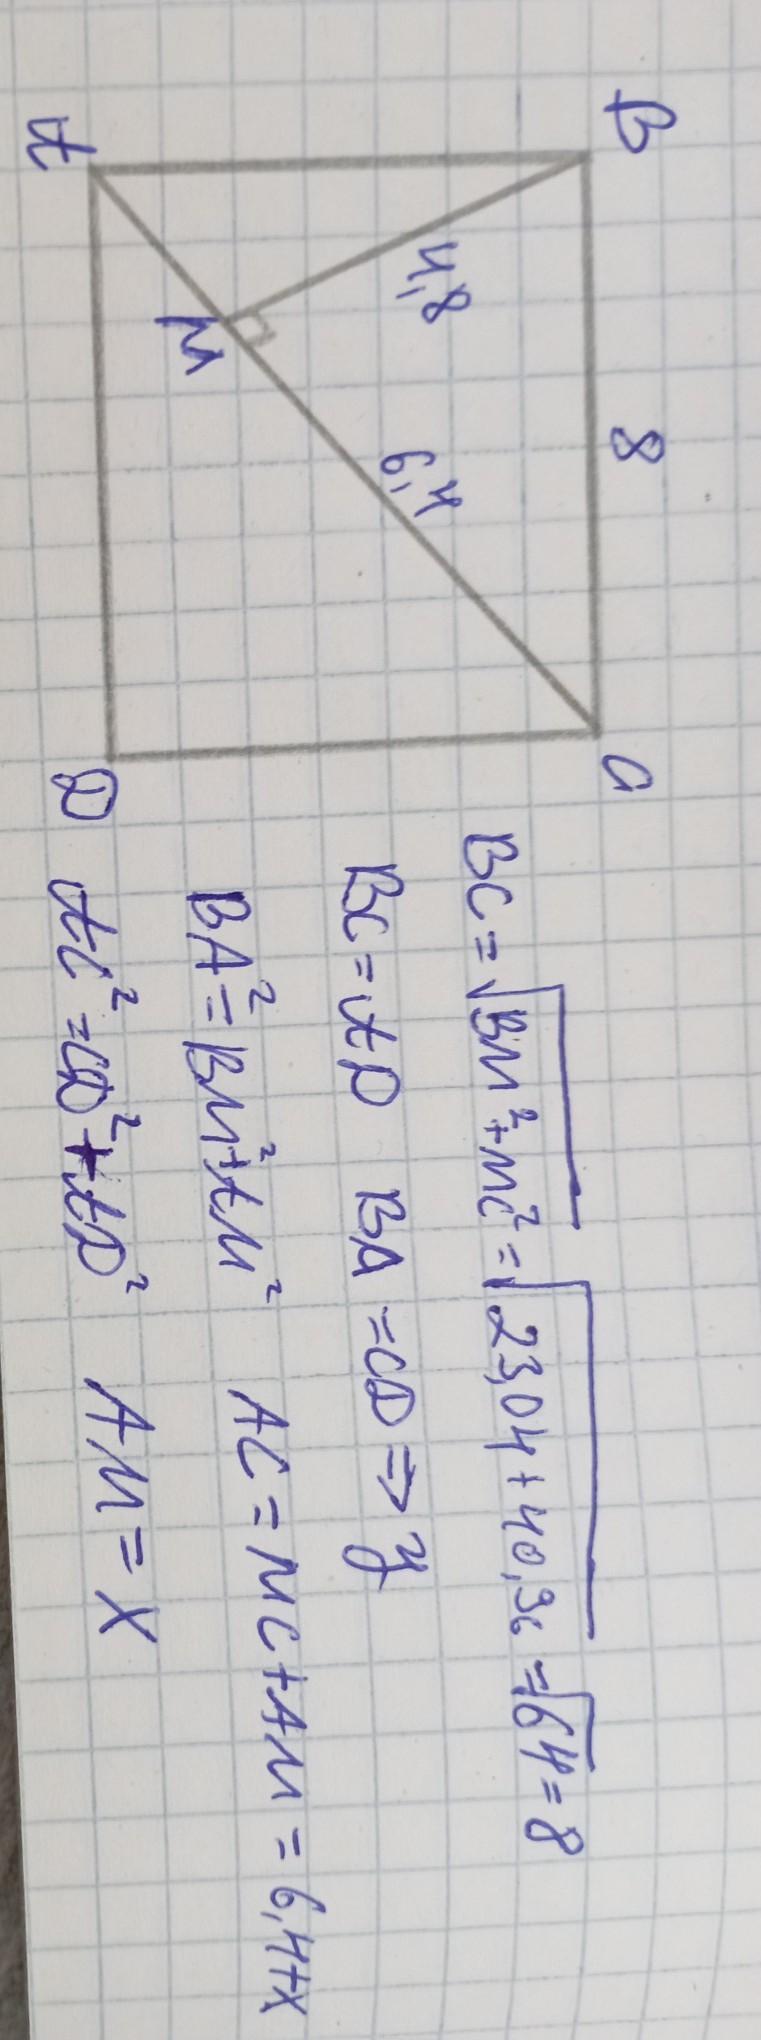 B
8
C
4,8
6,4
M
A
D
BC = √BM² + MC² = √23,04 + 40,96 = √64 = 8
BC = AD BA = CD ⇒ y
BA² = BM² + AM² AC = MC + AM = 6,4 + x
AC² = CD² + AD² AM = x